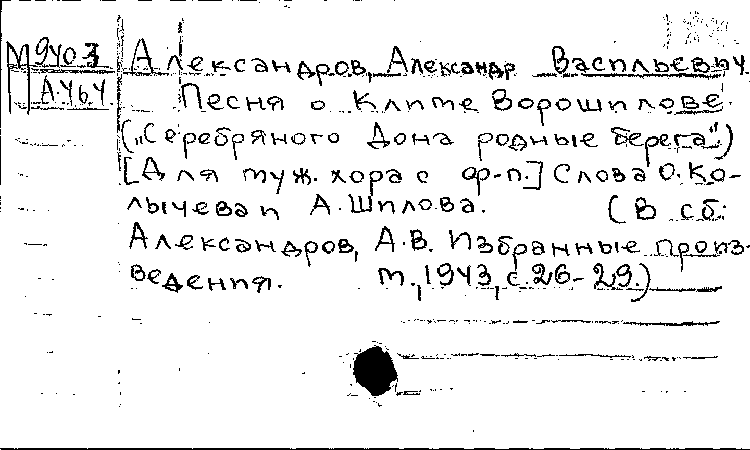 М940.3
А.464
Александров, Александр Васильевич.
Песня о Климе Ворошилове.
(„Серебряного Дона родные берега")
[Для муж. хора с ф-п.] Слова О. Ко-
лычева и А. Шилова. (В сб:
Александров, А.В. Избранные произ-
ведения. М., 1943, с. 26-29.)